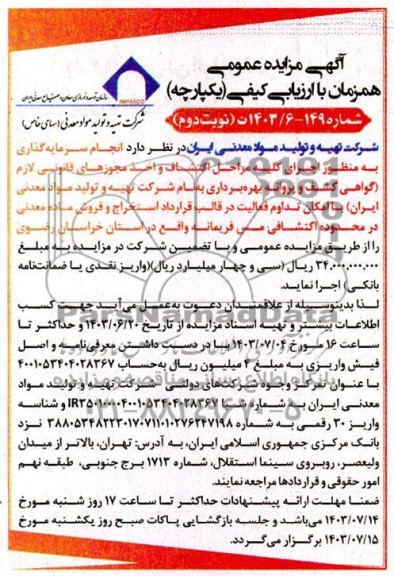 آگهی مزایده عمومی
همزمان با ارزیابی کیفی (یکپارچه)
IMPASCO
سازمان توسعه و نوسازی معادن و صنایع معدنی ایران
شرکت تهیه و تولید مواد معدنی (سهامی خاص)
شماره ۱۴۹-۱۴۰۳/۶ت (نوبت دوم)
شرکت تهیه و تولید مواد معدنی ایران در نظر دارد انجام سرمایه‌گذاری
به منظور اجرای کلیه مراحل اکتشاف و اخذ مجوزهای قانونی لازم
(گواهی کشف و پروانه بهره‌برداری به‌نام شرکت تهیه و تولید مواد معدنی
ایران) با امکان تداوم فعالیت در قالب قرارداد استخراج و فروش ماده معدنی
در محدوده اکتشافی مس فریمانه واقع در استان خراسان رضوی
را از طریق مزایده عمومی و با تضمین شرکت در مزایده به مبلغ
۳۴,۰۰۰,۰۰۰,۰۰۰ ریال (سی و چهار میلیارد ریال)(واریز نقدی یا ضمانت‌نامه
بانکی) اجرا نماید.
لذا بدینوسیله از علاقمندان دعوت به‌عمل می‌آید جهت کسب
اطلاعات بیشتر و تهیه اسناد مزایده از تاریخ ۱۴۰۳/۰۶/۲۰ و حداکثر تا
ساعت ۱۶ مورخ ۱۴۰۳/۰۷/۰۴ با در دست داشتن معرفی‌نامه و اصل
فیش واریزی به مبلغ ۴ میلیون ریال به‌حساب ۴۰۰۱۰۵۳۴۰۴۰۲۸۳۶۷
با عنوان تمرکز وجوه شرکت‌های دولتی - شرکت تهیه و تولید مواد
معدنی ایران به شماره شبا و شناسه
واریز ۳۰ رقمی به شماره نزد
بانک مرکزی جمهوری اسلامی ایران، به آدرس: تهران، بالاتر از میدان
ولیعصر، روبروی سینما استقلال، شماره ۱۷۱۳ برج جنوبی، طبقه نهم
امور حقوقی و قراردادها مراجعه نمایند.
ضمنا مهلت ارائه پیشنهادات حداکثر تا ساعت ۱۷ روز شنبه مورخ
۱۴۰۳/۰۷/۱۴ می‌باشد و جلسه بازگشایی پاکات صبح روز یکشنبه مورخ
۱۴۰۳/۰۷/۱۵ برگزار می‌گردد.
ParsNamadData
۰۲۱-۸۸۳۴۹۶۷۰-۵